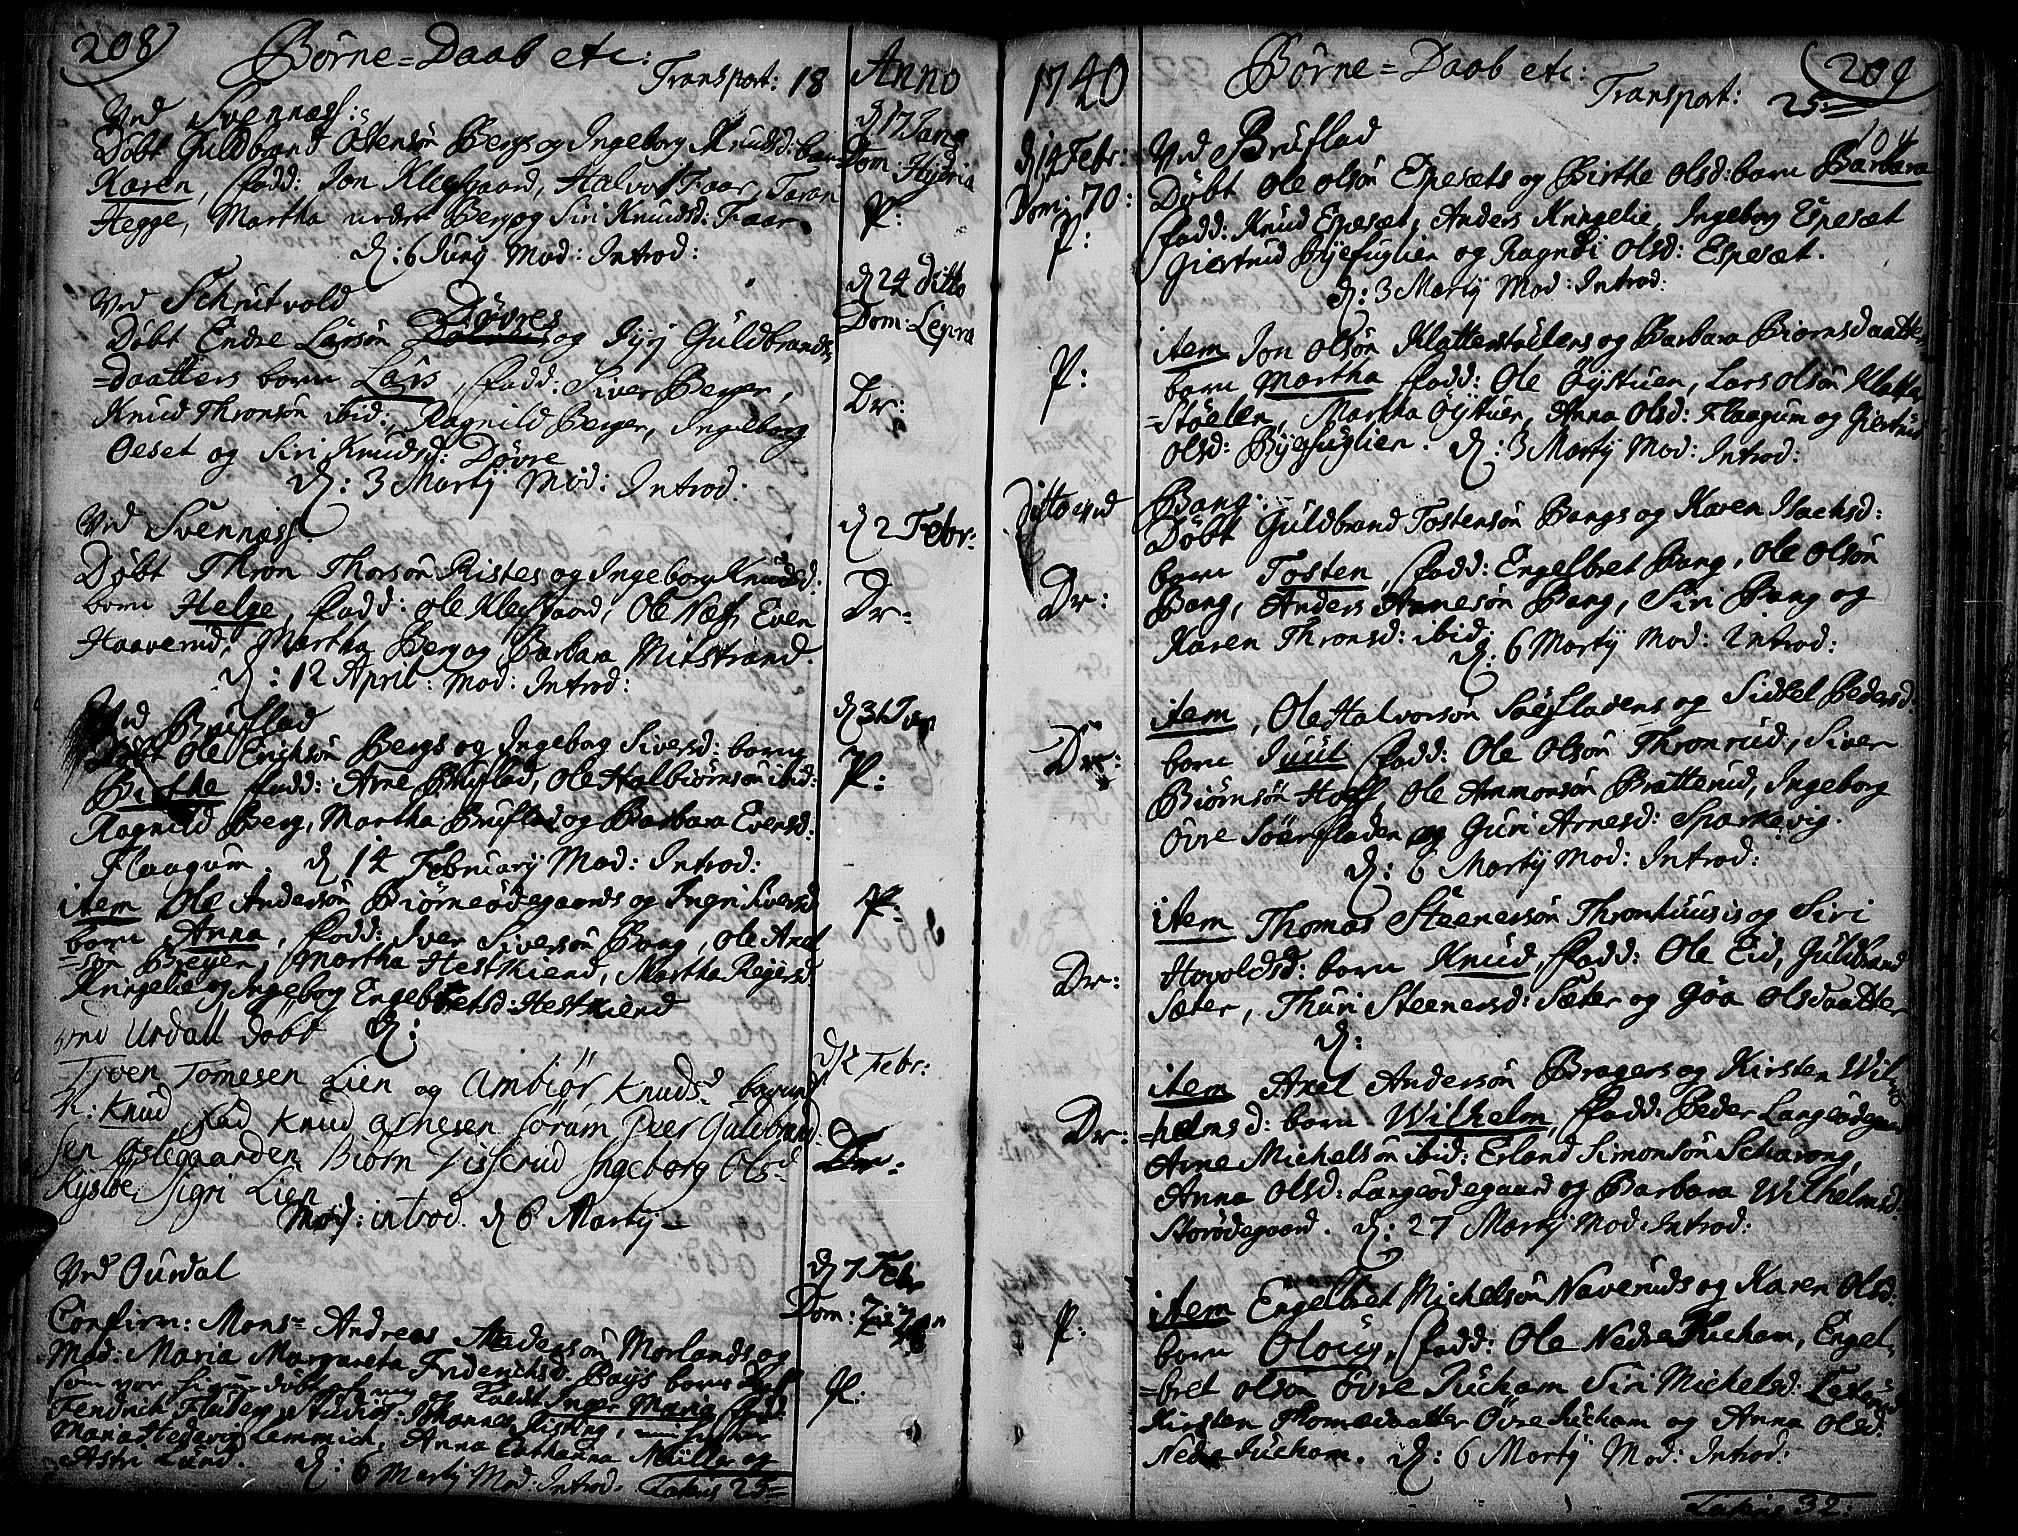 208
Børne=Daab etc:
Transport: 18
Anno
Ved Svennæss:
d 17 Janu
Døbt Guldbrand Ostensøn Bergs og Ingeborg Knudsd: barn
Dom: Hydria
Karen, fadd: Jon Klefgaard, Halvor Faar, Taran
Hegge, Martha nedre Berg og Siri Knudsd: Faar.
P:
d: 6 Junij Mod: Introd:
Ved Schrutvold
d 24 ditto
Døvres
Dom: Lepra
Døbt Endre Larsøn og Jyrj Guldbrands
=daatters barn Lars, fadd: Siver Berger,
Dr:
Knud Thronsøn ibid:, Ragnild Berger, Ingeborg
Oeset og Siri Knudsd: Døvre
d: 3 Martij Mod: Introd:
Ved Svennæss
d 2 Febr:
Døbt Thron Thorsøn Ristes og Ingeborg Knudsd:
Dr:
barn Helge, fadd: Ole Klefgaard, Ole Næss, Even
Haaverud, Martha Berg og Barbara Midstrand.
d: 12 April: Mod: Introd:
Ved Bruflad
d 31 Jan
Døbt Ole Erichsøn Bergs og Ingebog Siversd: barn
P:
Birthe fadd: Arne Bruflad, Ole Halbiørnsøn ibid:
Ragnild Berg, Martha Bruflad og Barbara Evensd:
Flaagum. d 14 Februarij Mod: Introd:
item Ole Andersøn Biørneødegaards og Ingri Siversd
P:
barn Anna, fadd: Iver Siversøn Bang, Ole Axel
=søn Breyer, Martha Hestkiend, Martha Reyersd
Kringelie og Ingebog Engebretsd: Hestkiend
d:
ved Urdall døbt
d 2 Febr:
Tyven Tomesen Lien og Ambiør Knudsd barn
N: Knud, fad Knud Arnesen Sørum Iver Guldbrand
sen Østegaarden, Biørn Disserud Ingeborg Olsd
Dr:
Kysloe, Sigri Lien
Mod: introd. d 6 Martij
Ved Ourdal
d 7 Febr
Confirm: Monsr Andreas Andersøn Morlands og
Mad: Maria Margareta Friderichsd. Bays barn
P:
som var hiemmedøbt og kaldt Inger Maria fadd:
Fendrich Studios: Johannes
Maria Hedevig Lemmich, Anna Catharina Müller og
Astri Lund. d: 6 Martij Mod: Introd. Latus 25=
1740
Børne=Daab etc:
209
Transport: 25
104
d 14 Febr:
Ved Bruflad
Dom: 70:
Døbt Ole Olsøn Espesæts og Birthe Olsd: barn Barbara
P:
fadd: Knud Espesæt, Anders Kringelie, Ingeborg Espesæt
Giertrud Byefuglien og Ragndi Olsd: Espesæt.
d: 3 Martij Mod: Introd:
item Jon Olsøn Klatterstuelens og Barbara Biørnsdaatter
P:
barn Martha fadd: Ole Øystuen, Lars Olsøn Klatter
=støelen, Martha Øystuen, Anna Olsd: Flaagum og Giertrud
Olsd: Byefuglien. d: 3 Martij Mod: Introd:
Ditto ved
Bang:
Døbt Guldbrand Tostensøn Bangs og Karen Isachsd:
Dr:
barn Tosten, fadd: Engelbret Bang, Ole Olsøn
Bang, Anders Arnesøn Bang, Siri Bang og
Karen Thronsd: ibid:
d: 6 Martij Mod: Introd:
item, Ole Halvorsøn Søefladens og Sidsel Pedersd
Dr:
barn Juul fadd: Ole Olsøn Thronrud, Siver
Biørnsøn Hoff, Ole Ammonsøn Bratterud, Ingeborg
Øvre Søerfladen og Guri Arnesd: Sparnevig.
d: 6 Martij Mod: Introd:
item Thomas Steenersøn Thronhuusis og Siri
Dr:
Hovoldsd: barn Knud, fadd: Ole Eid, Guldbrand
Sæter, Thuri Steenersd: Sæter og Göa Olsdaatter
d:
item Axel Andersøn Bragers og Kirsten Wil
Dr:
=helmsd: barn Wilhelm, fadd: Peder Langeødegaard
Arne Michelsøn ibid: Erland Simonsøn Scharong,
Anna Olsd: Langeødegaard og Barbara Wilhelmsd:
Storødegaard. d: 27 Martij Mod: Introd:
item Engelbret Michelsøn Naveruds og Karen Olsd:
P:
barn Oloug, fadd: Ole Nedre Jucham, Engel
=bret Olson Øvre Jucham Siri Michelsd:
Kirsten Thomedaatter Øvre Jucham og Anna Olsd:
Nedre Jucham. d: 6 Martij Mod: Introd:
Latus 32: